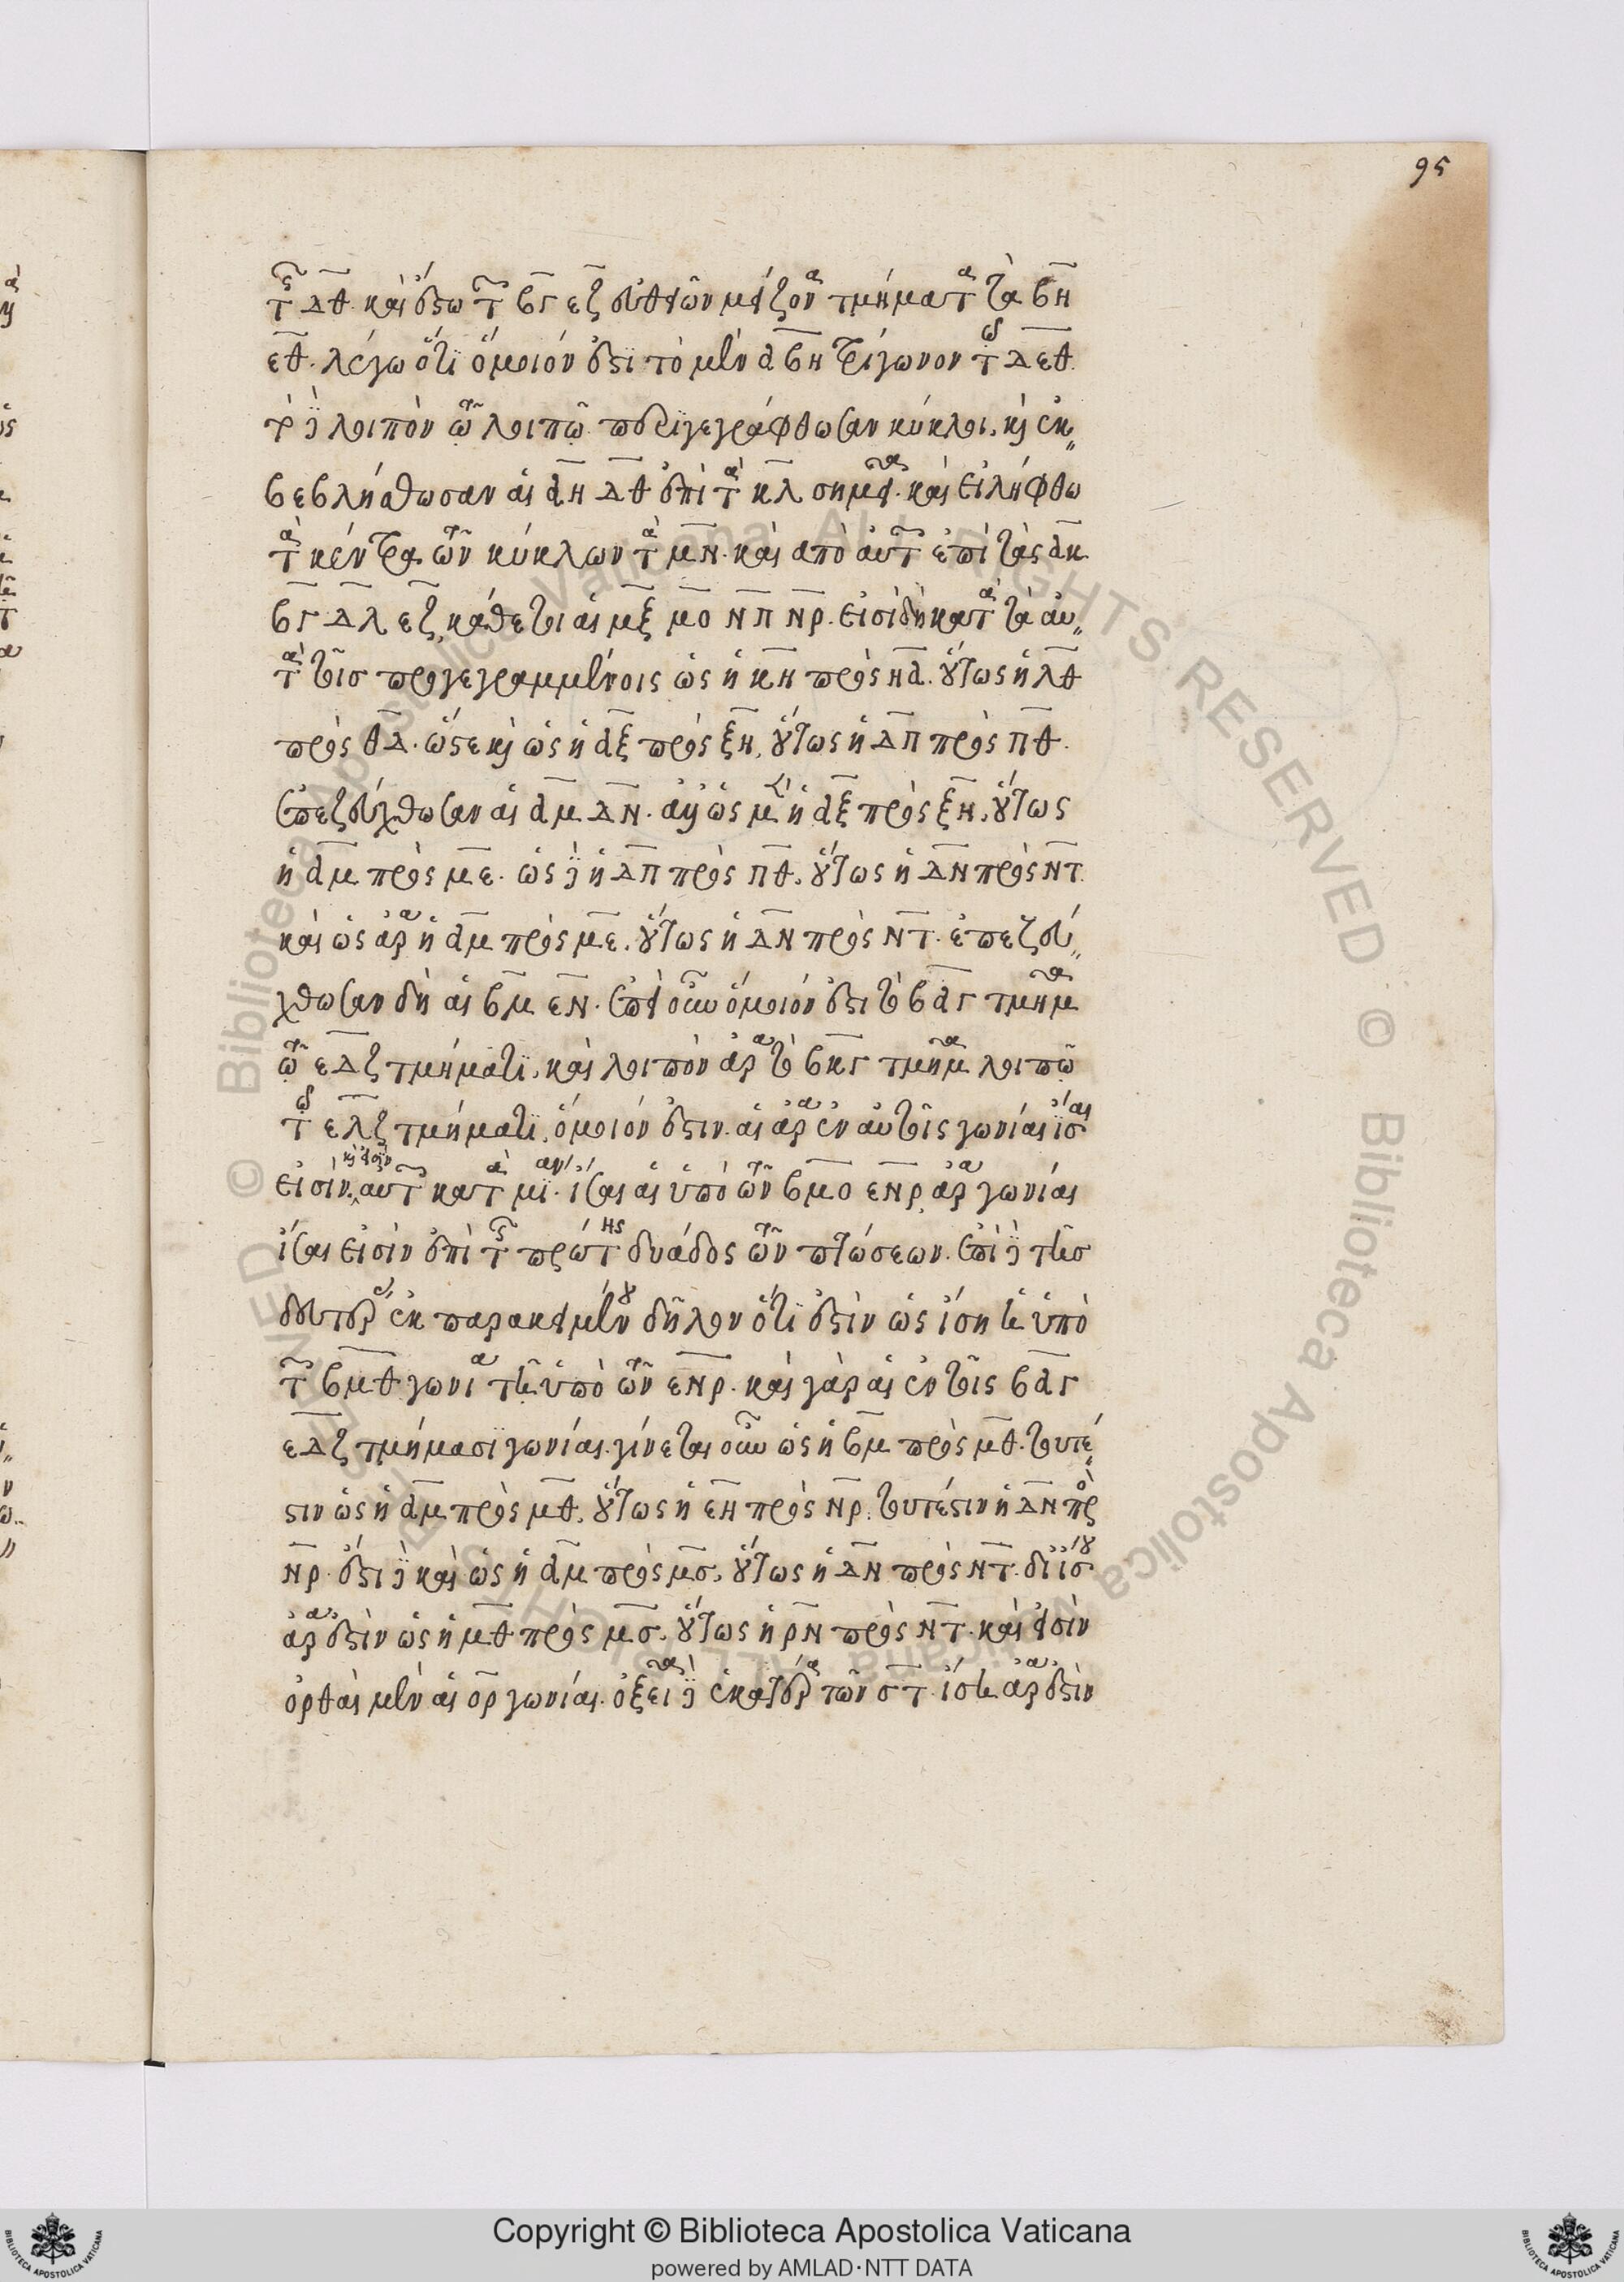 95
τῆς ΔΘ. καὶ ἔστω τῶν ΒΓ ΕΖ εὐθειῶν μείζονα τμήματα τὰ ΒΗ
ΕΘ. λέγω ὅτι ὅμοιόν ἐστι τὸ μὲν ΑΒΗ τρίγωνον τῷ ΔΕΘ.
τὸ δὲ λοιπὸν τῷ λοιπῷ. περιγεγράφθωσαν κύκλοι, καὶ ἐκ"
βεβλήσθωσαν αἱ ΑΗ ΔΘ ἐπὶ τὰ ΚΛ σημεῖα. καὶ εἰλήφθω
τὰ κέντρα τῶν κύκλων τὰ ΜΝ. καὶ ἀπὸ αὐτῶν ἐπὶ τὰς ΑΚ
ΒΓ ΔΛ ΕΖ κάθετοι αἱ ΜΞ ΜΟ ΝΠ ΝΡ. εἰσὶ δὴ κατὰ τὰ αὐ"
τὰ τοῖς προγεγραμμένοις ὡς ἡ ΚΗ πρὸς ΗΑ. οὕτως ἡ ΛΘ
πρὸς ΘΔ. ὥστε καὶ ὡς ἡ ΑΞ πρὸς ΞΗ, οὕτως ἡ ΔΠ πρὸς ΠΘ.
ἐπεζεύχθωσαν αἱ ΑΜ ΔΝ. ὡς μὲν ἡ ΑΞ πρὸς ΞΗ, οὕτως
ἡ ΑΜ πρὸς ΜΕ. ὡς δὲ ἡ ΔΠ πρὸς ΠΘ, οὕτως ἡ ΔΝ πρὸς ΝΤ.
καὶ ὡς ἄρα ἡ ΑΜ πρὸς ΜΕ, οὕτως ἡ ΔΝ πρὸς ΝΤ. ἐπεζεύ"
χθωσαν δὴ αἱ ΒΜ ΕΝ. ἐπεὶ οὖν ὅμοιόν ἐστι τὸ ΒΑΓ τμῆμα
τῷ ΕΔΖ τμήματι, καὶ λοιπὸν ἄρα τὸ ΒΚΓ τμῆμα λοιπῷ
τῷ ΕΛΖ τμήματι, ὅμοιόν ἐστιν. αἱ ἄρα ἐν αὐτοῖς γωνίαι ἴσαι
εἰσίν. καὶ εἰσὶν αὐτῶν κατὰ μίαν. ἴσαι αἱ ὑπὸ τῶν ΒΜΟ ΕΝΡ ἄρα γωνίαι
ἴσαι εἰσὶν ἐπὶ τῆς πρώτης δυάδος τῶν πτώσεων. ἐπὶ δὲ τῆς
δευτέρας ἐκ παρακειμένου δῆλον ὅτι ἐστὶν ὡς ἴση τε ὑπὸ
τῶν ΒΜΘ γωνία τῇ ὑπὸ τῶν ΕΝΡ. καὶ γὰρ αἱ ἐν τοῖς ΒΑΓ
ΕΔΖ τμήμασι γωνίαι. γίνεται οὖν ὡς ἡ ΒΜ πρὸς ΜΘ. τουτέ"
στιν ὡς ἡ ΑΜ πρὸς ΜΘ, οὕτως ἡ ΕΗ πρὸς ΝΡ. τουτέστιν ἡ ΔΝ πρὸς
ΝΡ. ἔστι δὲ καὶ ὡς ἡ ΑΜ πρὸς ΜΣ, οὕτως ἡ ΔΝ πρὸς ΝΤ. δι' ἴσου
ἄρα ἐστὶν ὡς ἡ ΜΘ πρὸς ΜΣ. οὕτως ἡ ΡΝ πρὸς ΝΤ. καὶ εἰσὶν
ὀρθαὶ μὲν αἱ ΟΡ γωνίαι. ὀξεῖα δὲ ἑκατέρα τῶν ΣΤ. ἴση ἄρα ἐστὶν
Copyright © Biblioteca Apostolica Vaticana
powered by AMLAD·NTT DATA